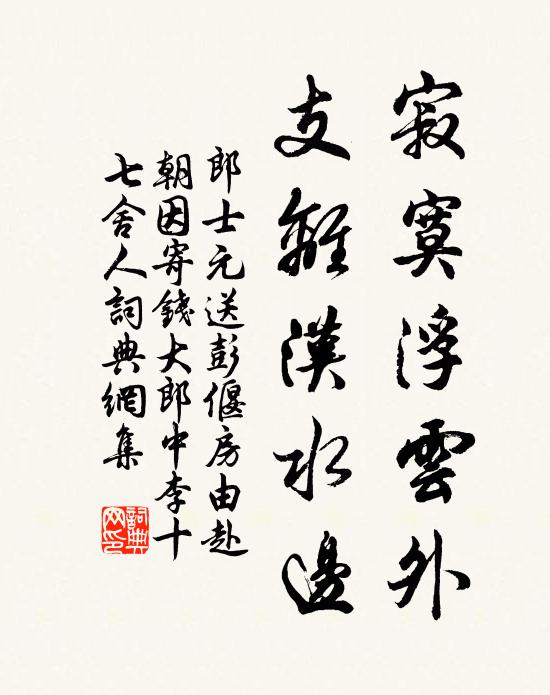 寂寞浮雲外
支離漢水邊
郎士元送彭偃房由赴
朝因寄錢大郎中李十
七舍人詞典網集
詞典
网印